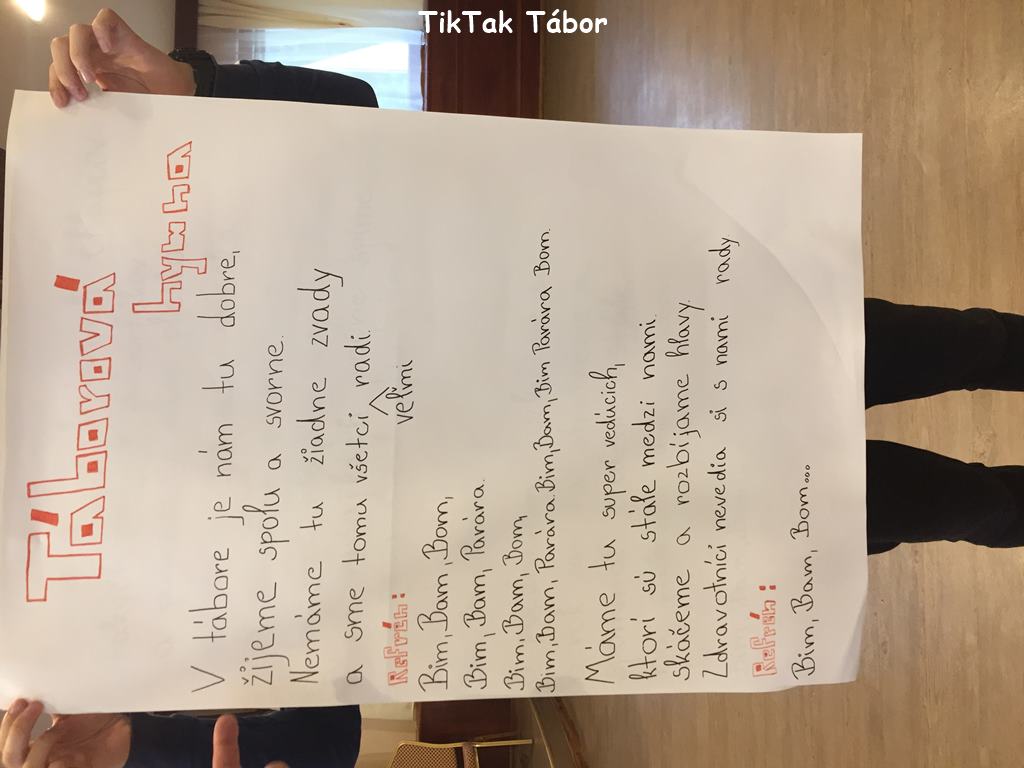 TikTak Tábor
Táborová
hymna
V tábore je nám tu dobre,
žijeme spolu a svorne.
Nemáme tu žiadne zvady
a sme tomu všetci radi.
veľmi
Refrén:
Bim, Bam, Bom,
Bim, Bam, Parára.
Bim, Bam, Bom,
Bim, Bam, Parára Bim, Bam, Bim Parára Bom.
Máme tu super vedúcich,
ktorí sú stále medzi nami.
skáčeme a rozbíjame hlavy.
Zdravotníci nevedia si s nami rady
Refrén:
Bim, Bam, Bom...